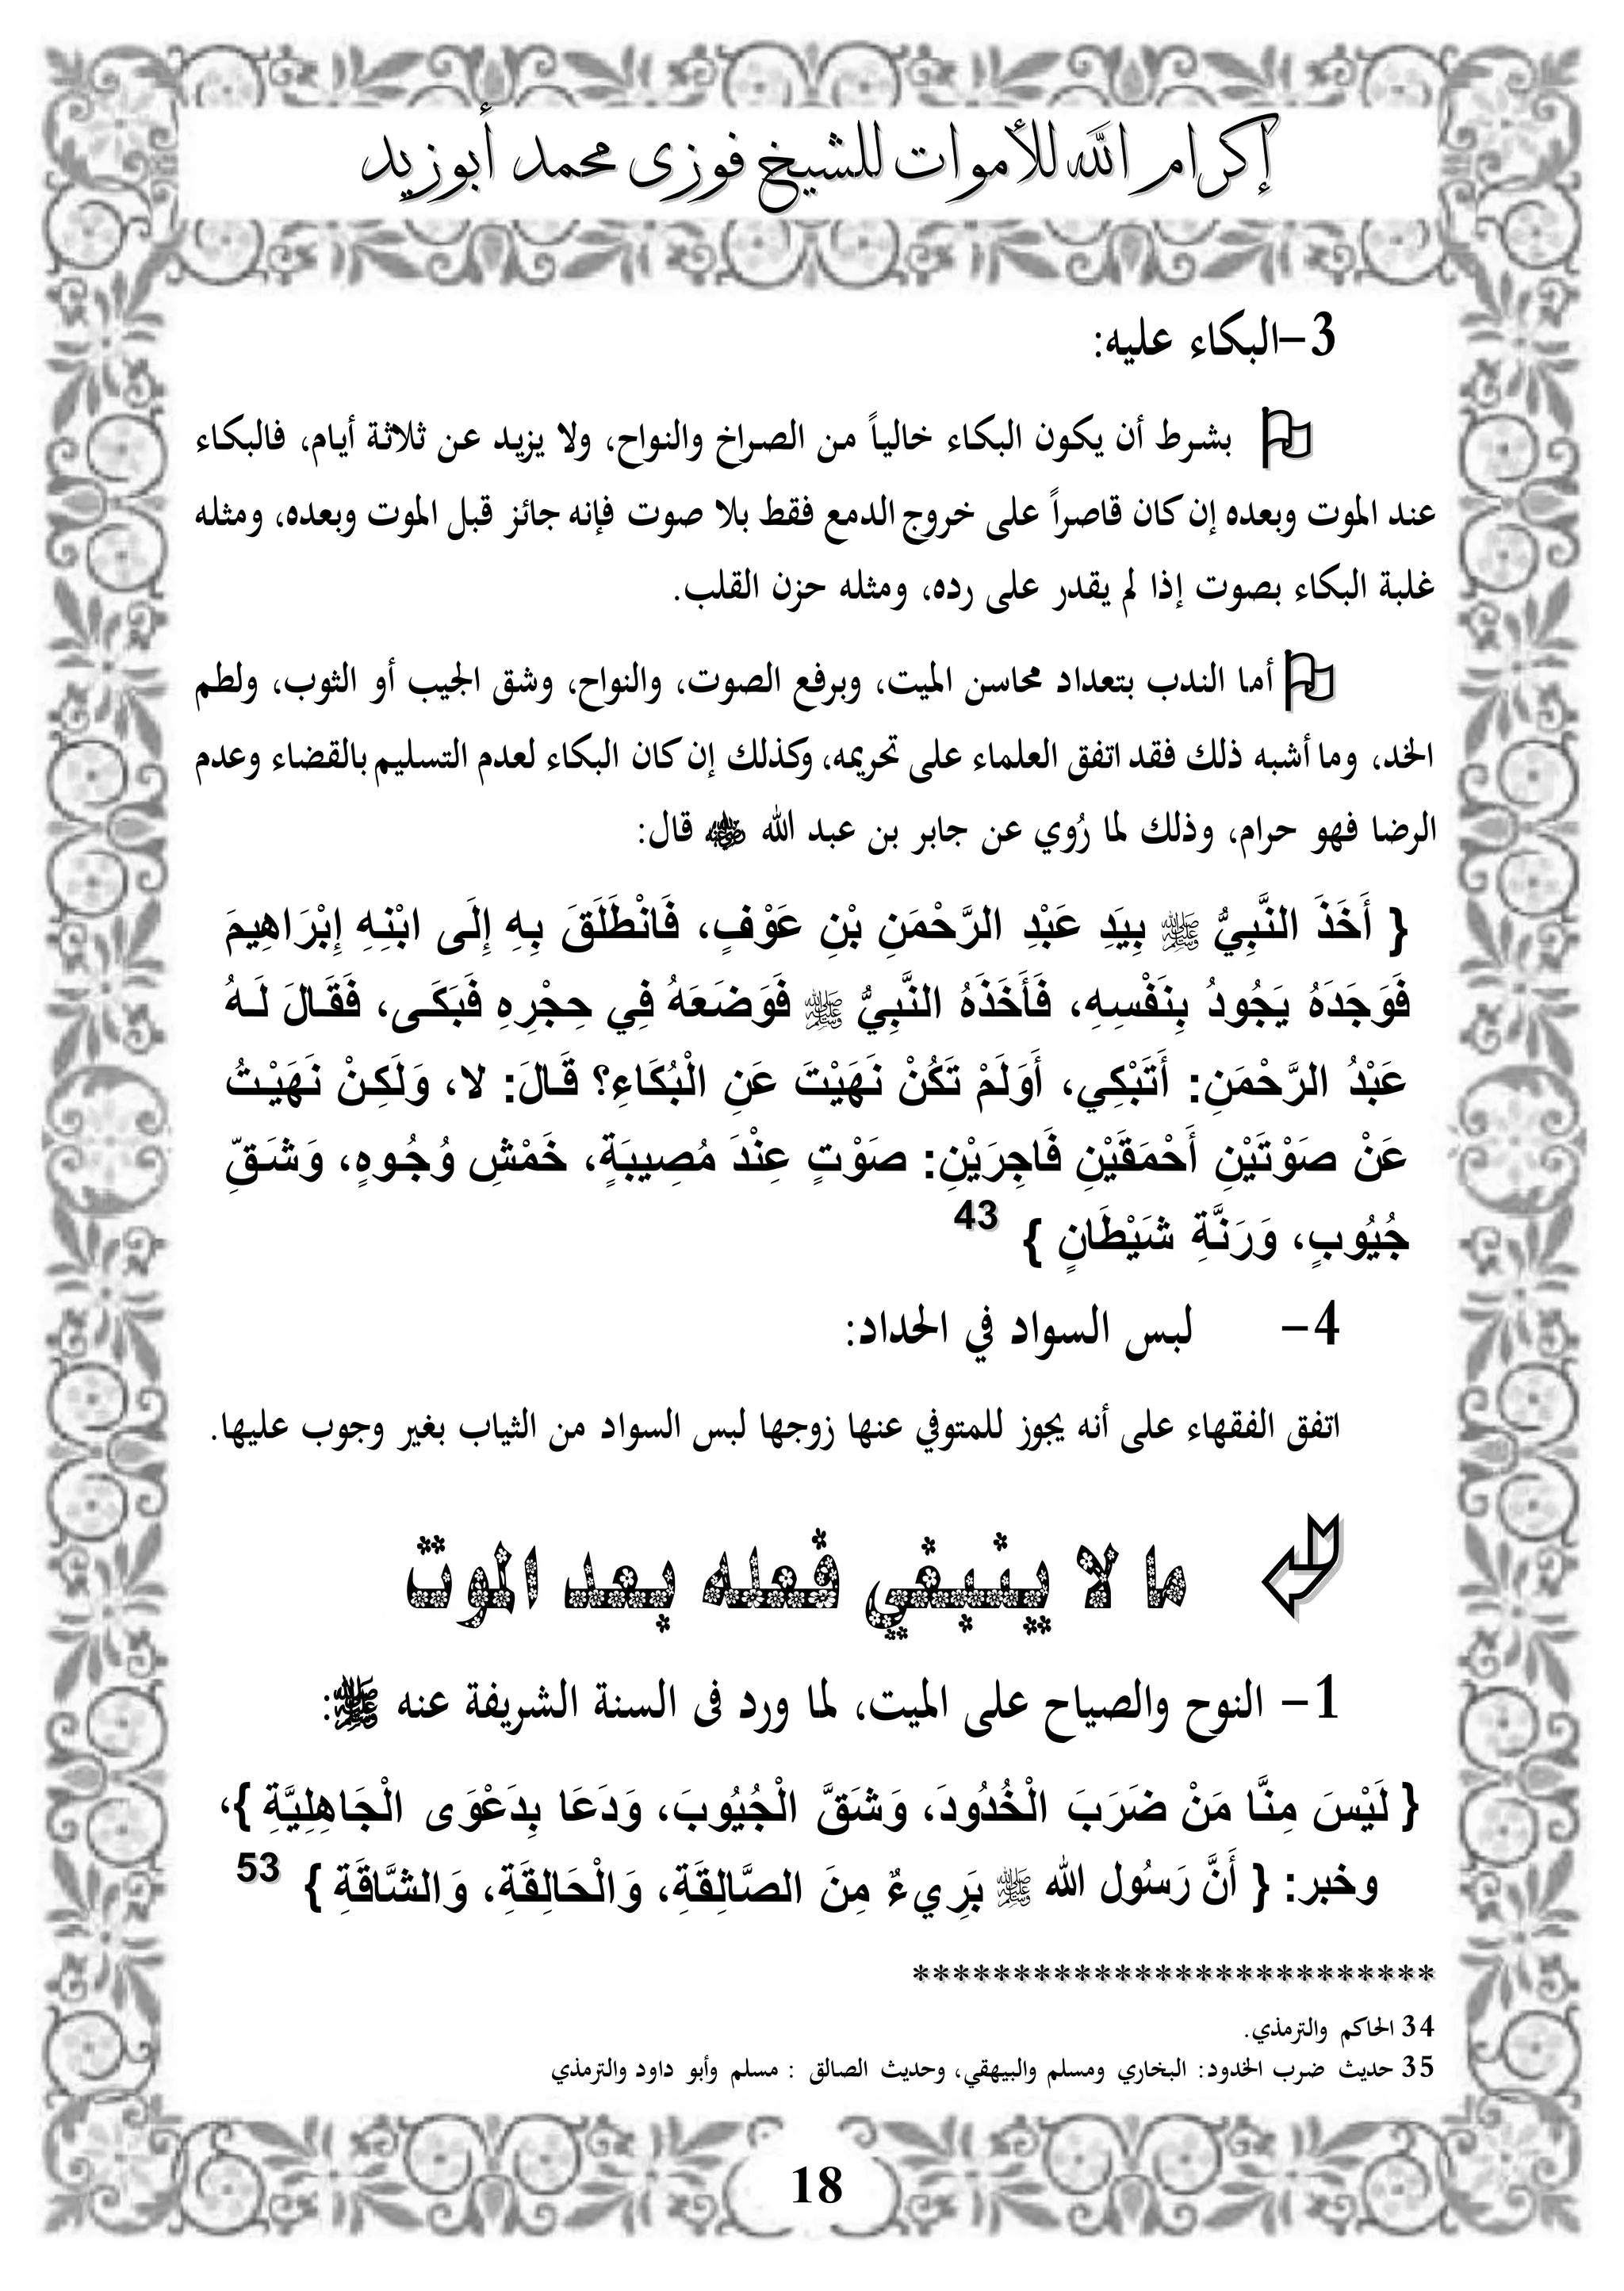 إكرام الله للأموات للشيخ فوزى محمد أبوزيد
3-البكاء عليه:
بشرط أن يكون البكاء خالياً من الصراخ والنواح، ولا يزيد عن ثلاثة أيام، فالبكاء
عند الموت وبعده إن كان قاصراً على خروج الدمع فقط بلا صوت فإنه جائز قبل الموت وبعده، ومثله
غلبة البكاء بصوت إذا لم يقدر على رده، ومثله حزن القلب.
أما الندب بتعداد محاسن الميت، وبرفع الصوت، والنواح، وشق الجيب أو الثوب، ولطم
الخد، وما أشبه ذلك فقد اتفق العلماء على تحريمه، وكذلك إن كان البكاء لعدم التسليم بالقضاء وعدم
الرضا فهو حرام، وذلك لما رُوي عن جابر بن عبد الله قال:
{ أَخَذَ النَّبِيُّ ﷺ بِيَدِ عَبْدِ الرَّحْمَنِ بْنِ عَوْفٍ، فَانْطَلَقَ بِهِ إِلَى ابْنِهِ إِبْرَاهِيمَ
فَوَجَدَهُ يَجُودُ بِنَفْسِهِ، فَأَخَذَهُ النَّبِيُّ ﷺ فَوَضَعَهُ فِي حِجْرِهِ فَبَكَى، فَقَالَ لَهُ
عَبْدُ الرَّحْمَنِ: أَتَبْكِي، أَوَلَمْ تَكُنْ نَهَيْتَ عَنِ الْبُكَاءِ؟ قَالَ: لا، وَلَكِنْ نَهَيْتُ
عَنْ صَوْتَيْنِ أَحْمَقَيْنِ فَاجِرَيْنِ: صَوْتٍ عِنْدَ مُصِيبَةٍ، خَمْشِ وُجُوهٍ، وَشَقِّ
جُيُوبٍ، وَرَنَّةِ شَيْطَانٍ } 43
4- لبس السواد في الحداد:
اتفق الفقهاء على أنه يجوز للمتوفي عنها زوجها لبس السواد من الثياب بغير وجوب عليها.
ما لا ينبغي فعله بعد الموت
1- النوح والصياح على الميت، لما ورد فى السنة الشريفة عنه ﷺ:
{ لَيْسَ مِنَّا مَنْ ضَرَبَ الْخُدُودَ، وَشَقَّ الْجُيُوبَ، وَدَعَا بِدَعْوَى الْجَاهِلِيَّةِ }،
وخبر: { أَنَّ رَسُول الله ﷺ بَرِيءٌ مِنَ الصَّالِقَةِ، وَالْحَالِقَةِ، وَالشَّاقَةِ } 53
**************************
34 الحاكم والترمذي.
35 حديث ضرب الخدود: البخاري ومسلم والبيهقي، وحديث الصالق : مسلم وأبو داود والترمذي
18